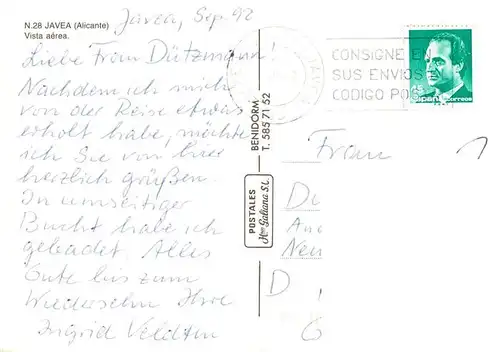 N.28 JAVEA (Alicante)
Vista aérea.
Javea, Sep. 92
Liebe Frau Dützmann!
Nachdem ich mich
von der Reise etwas
erholt habe, möchte
ich Sie von hier
herzlich grüßen.
In umseitiger
Bucht habe ich
gebadet. Alles
Gute bis zum
Wiedersehn Ihre
Ingrid Veldten
BENIDORM
T. 585 71 52
POSTALES
Hnos Galiana S.L.
CONSIGNE EN
SUS ENVIOS EL
CODIGO POS
España correos
Frau
D